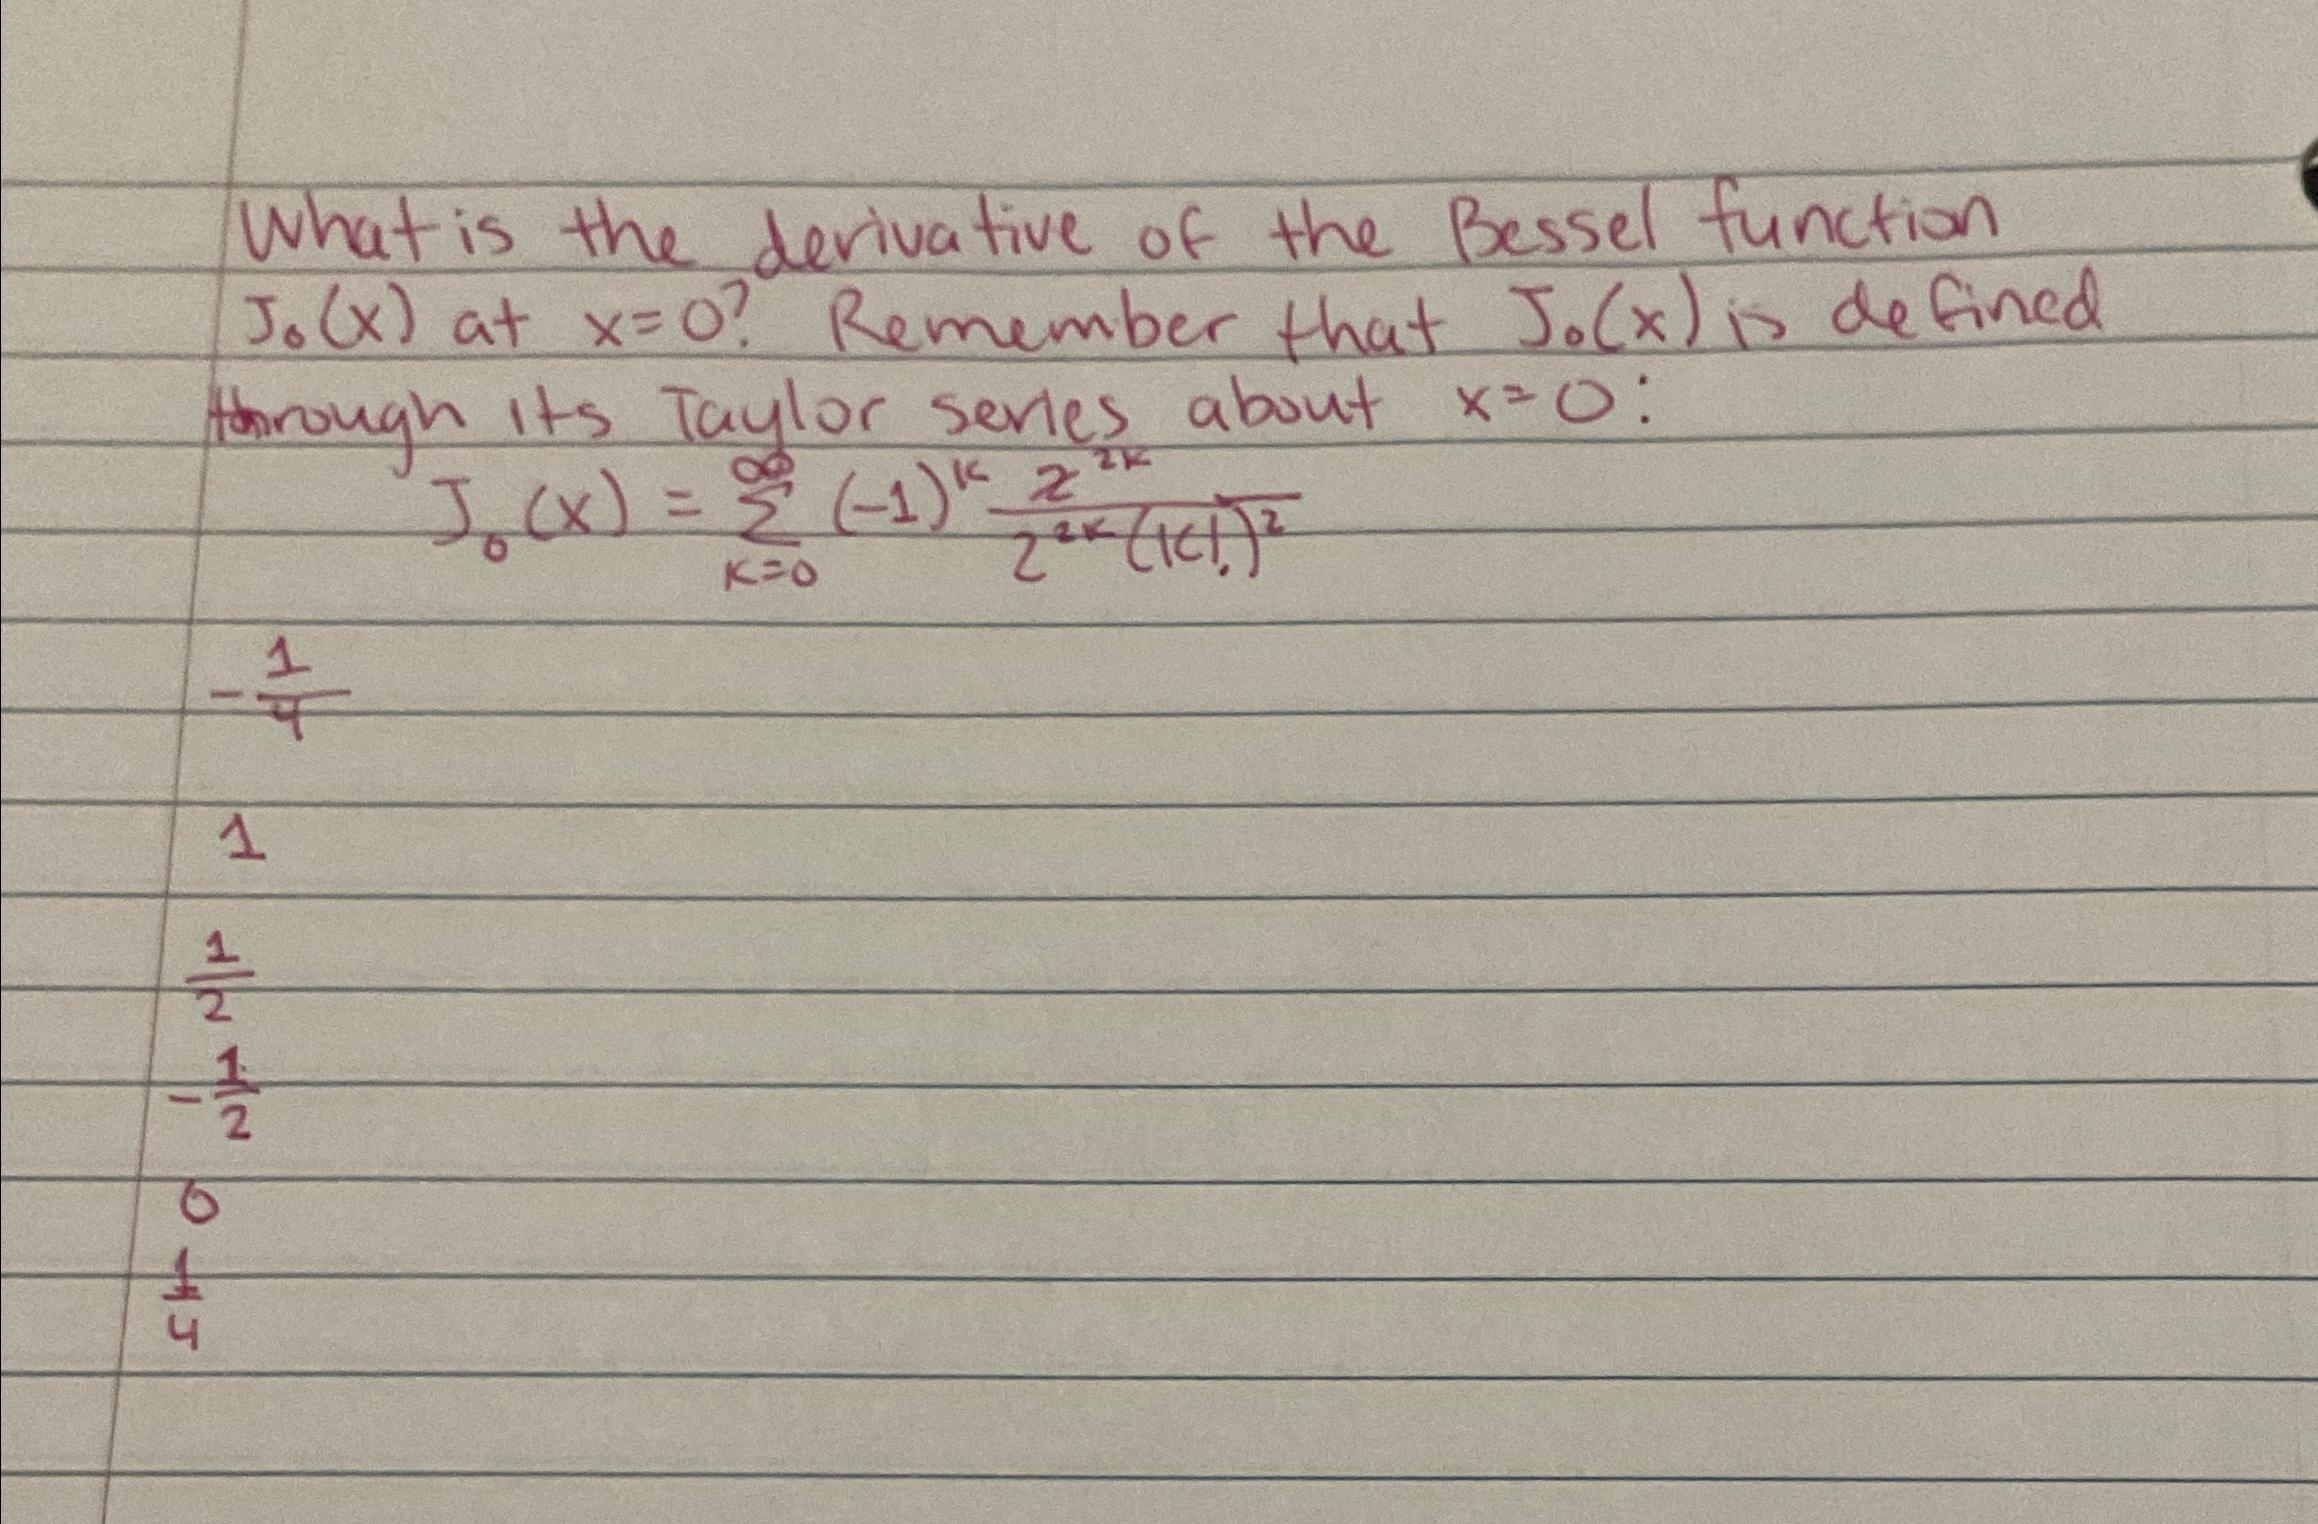 What is the derivative of the Bessel function
J₀(x) at x=0? Remember that J₀(x) is defined
through its Taylor series about x=0:
J₀(x) = ∑_{k=0}^{∞} (-1)^k z^{2k} / 2^{2k}(k!)^2
-1/4
1
1/2
-1/2
0
1/4